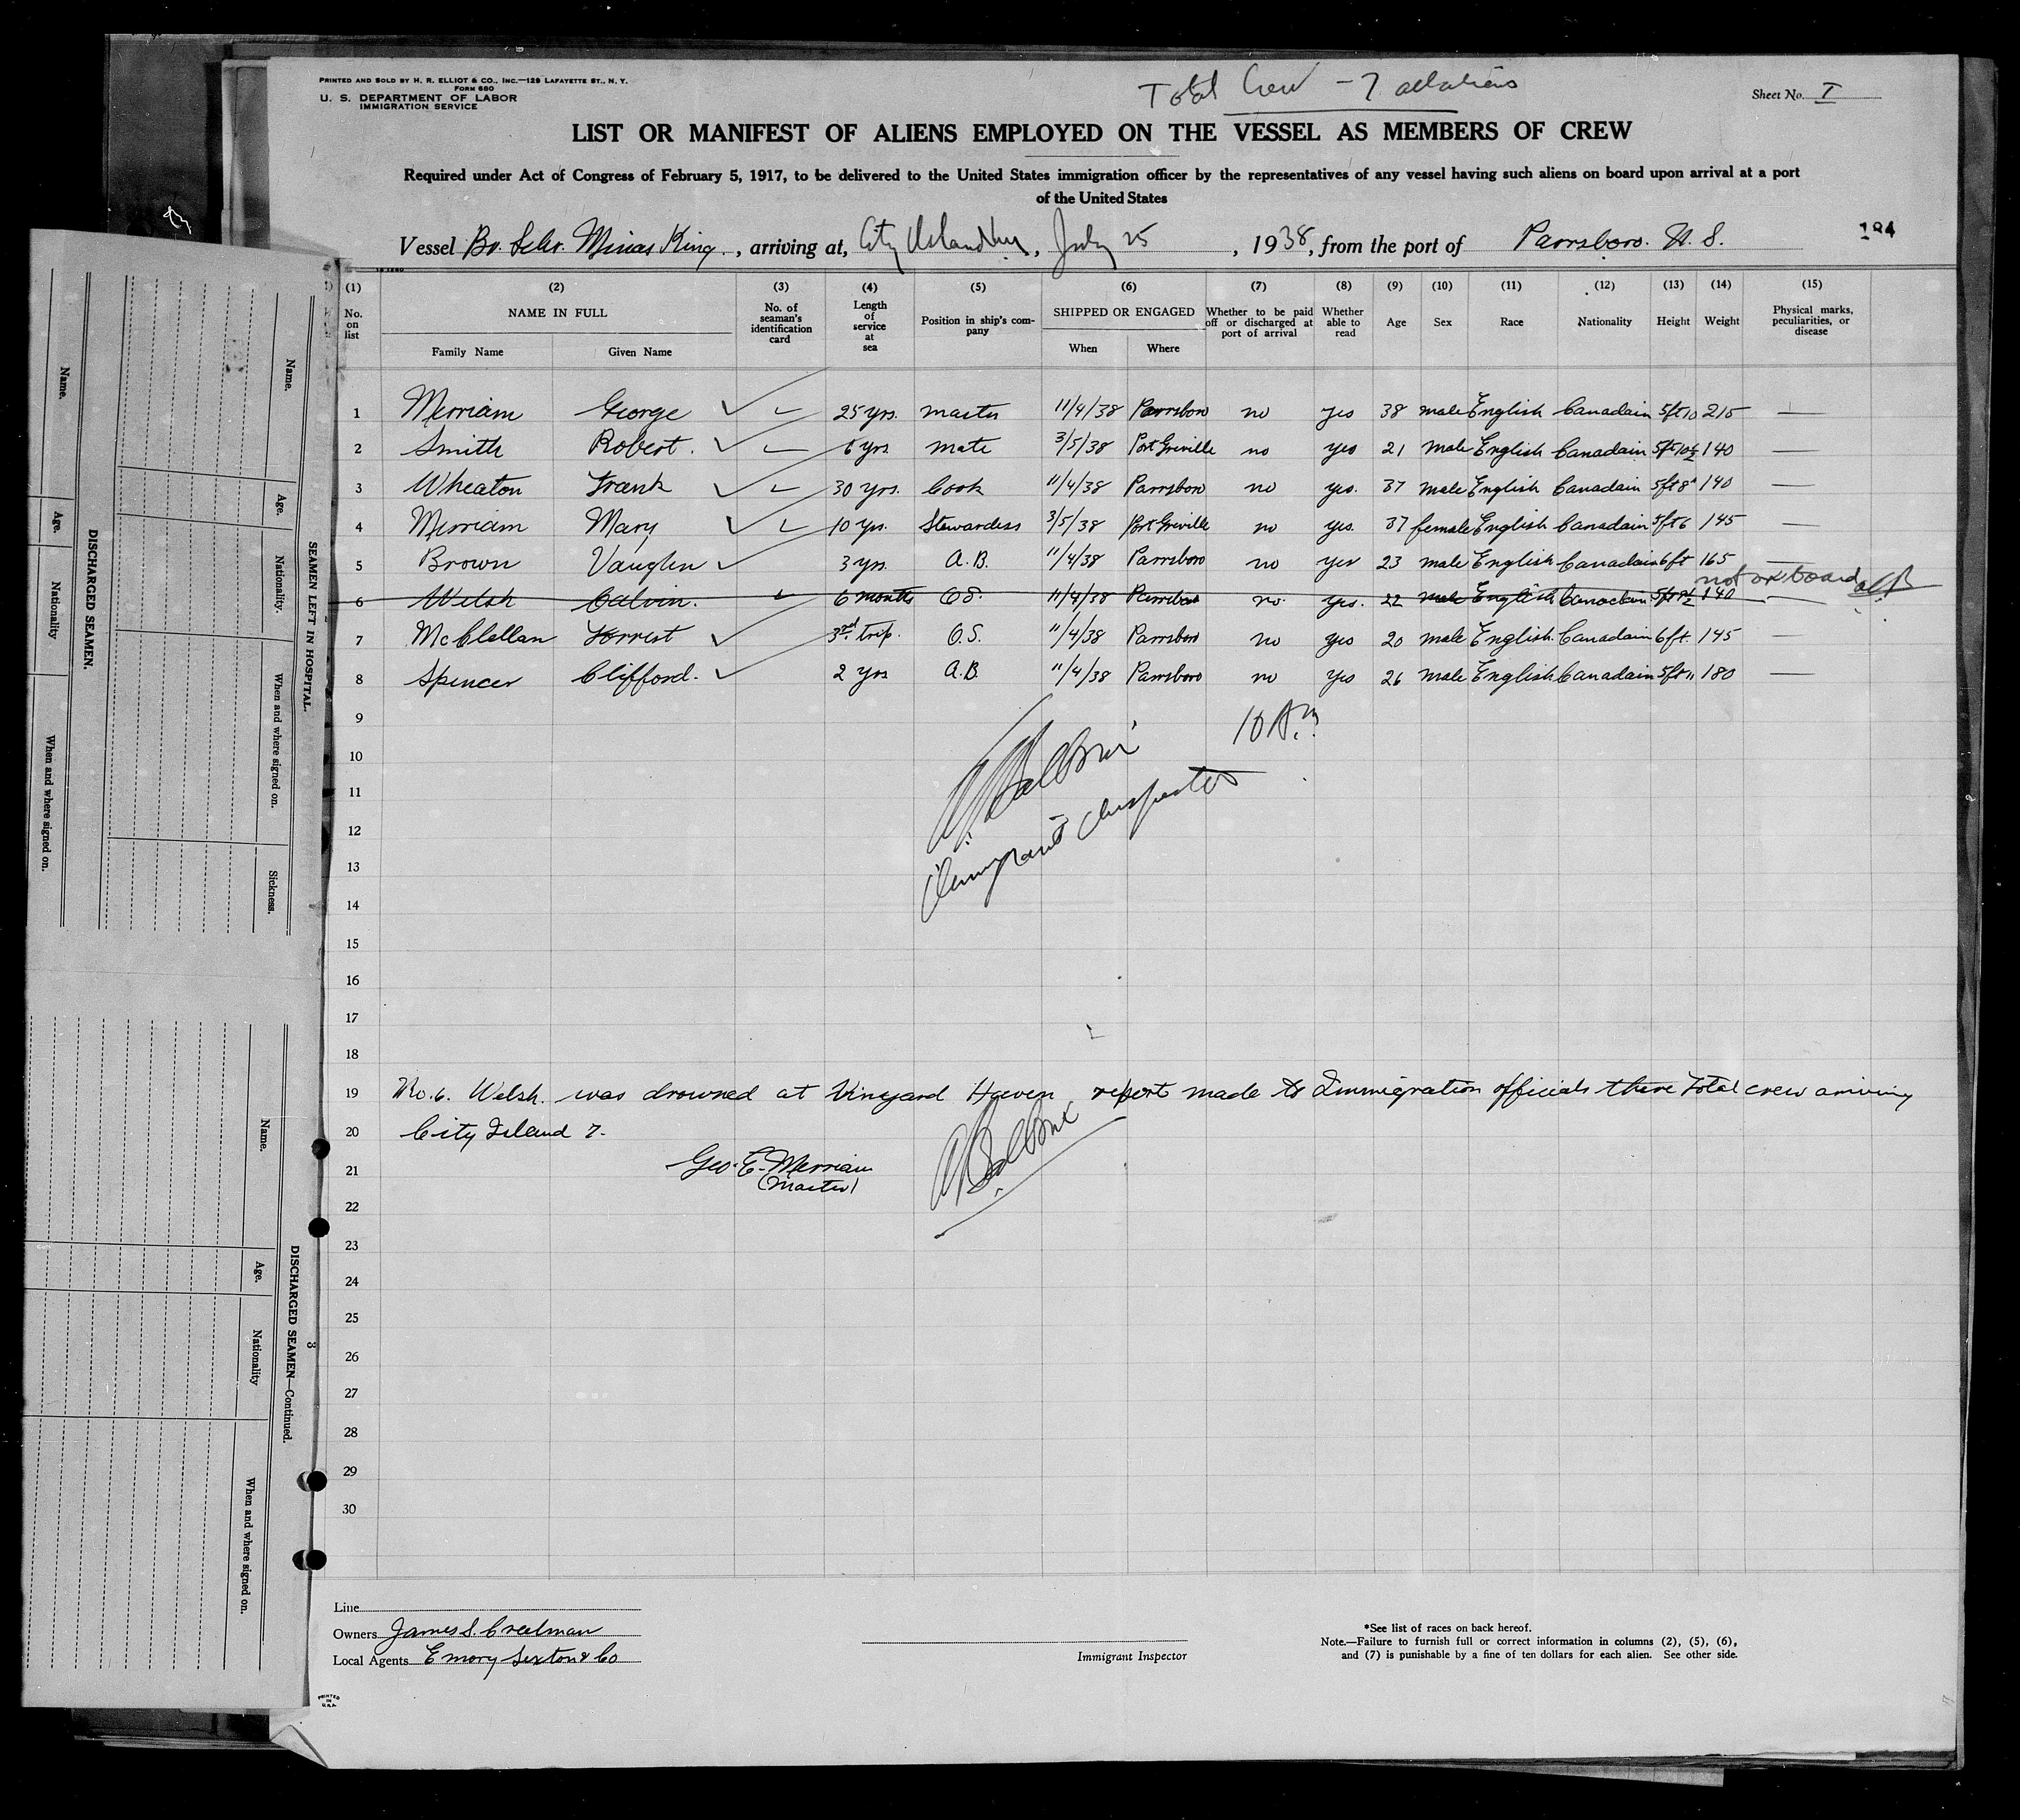 PRINTED AND SOLD BY H. R. ELLIOT & CO., INC.—129 LAFAYETTE ST., N. Y.
FORM 680
U. S. DEPARTMENT OF LABOR
IMMIGRATION SERVICE
Total Crew - 7 all aliens
Sheet No. I
LIST OR MANIFEST OF ALIENS EMPLOYED ON THE VESSEL AS MEMBERS OF CREW
Required under Act of Congress of February 5, 1917, to be delivered to the United States immigration officer by the representatives of any vessel having such aliens on board upon arrival at a port
of the United States
Vessel Br. Schr. Minas King, arriving at, City Island N.Y., July 25, 1938, from the port of Parrsboro. N. S.
194
(1) (2) (3) (4) (5) (6) (7) (8) (9) (10) (11) (12) (13) (14) (15)
No. on list
NAME IN FULL
Family Name Given Name
No. of seaman's identification card
Length of service at sea
Position in ship's company
SHIPPED OR ENGAGED
When Where
Whether to be paid off or discharged at port of arrival
Whether able to read
Age Sex Race Nationality Height Weight
Physical marks, peculiarities, or disease
1 Merriam George 25 yrs. master 11/4/38 Parrsboro no yes 38 male English Canadain 5ft10 215 —
2 Smith Robert. 6 yrs mate 3/5/38 Port Greville no yes 21 male English Canadain 5ft10½ 140 —
3 Wheaton Frank 30 yrs. Cook 11/4/38 Parrsboro no yes. 37 male English Canadain 5ft8" 140 —
4 Merriam Mary 10 yrs. Stewardess 3/5/38 Port Greville no yes. 37 female English Canadain 5ft6 145 —
5 Brown Vaughn 3 yrs. A.B. 11/4/38 Parrsboro no yes 23 male English Canadain 6ft 165 —
not on board
6 Welsh Calvin. 6 months O.S. 11/4/38 Parrsboro no. yes. 22 male English Canadain 140 —
7 McClellan Forrest 3rd. trip. O.S. 11/4/38 Parrsboro no yes 20 male English Canadain 6ft. 145 —
8 Spencer Clifford. 2 yrs A.B. 11/4/38 Parrsboro no yes 26 male English Canadain 5ft11 180 —
9
10 10 A.M.
11
12
13 Immigrant Inspector
14
15
16
17
18
19 No. 6. Welsh. was drowned at Vineyard Haven report made to Immigration officials there Total crew arriving
20 City Island 7.
21 Geo. E. Merriam
(Master)
22
23
24
25
26
27
28
29
30
Line
Owners James S. Creelman
Local Agents Emory Sexton & Co
Immigrant Inspector
*See list of races on back hereof.
Note.—Failure to furnish full or correct information in columns (2), (5), (6),
and (7) is punishable by a fine of ten dollars for each alien. See other side.
PRINTED
IN
U.S.A.
SEAMEN LEFT IN HOSPITAL.
Name. Age. Nationality. When and where signed on. Sickness.
DISCHARGED SEAMEN.
Name. Age. Nationality When and where signed on.
DISCHARGED SEAMEN—Continued.
3
Name. Age. Nationality When and where signed on.